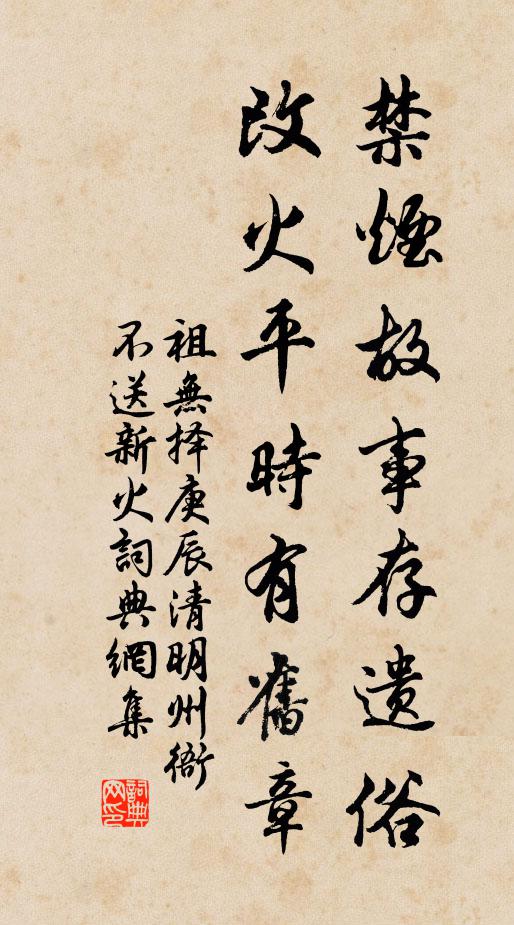 禁煙故事存遗俗
改火平時有舊章
祖無择庚辰清明州衙
不送新火詞典網集
詞典网印